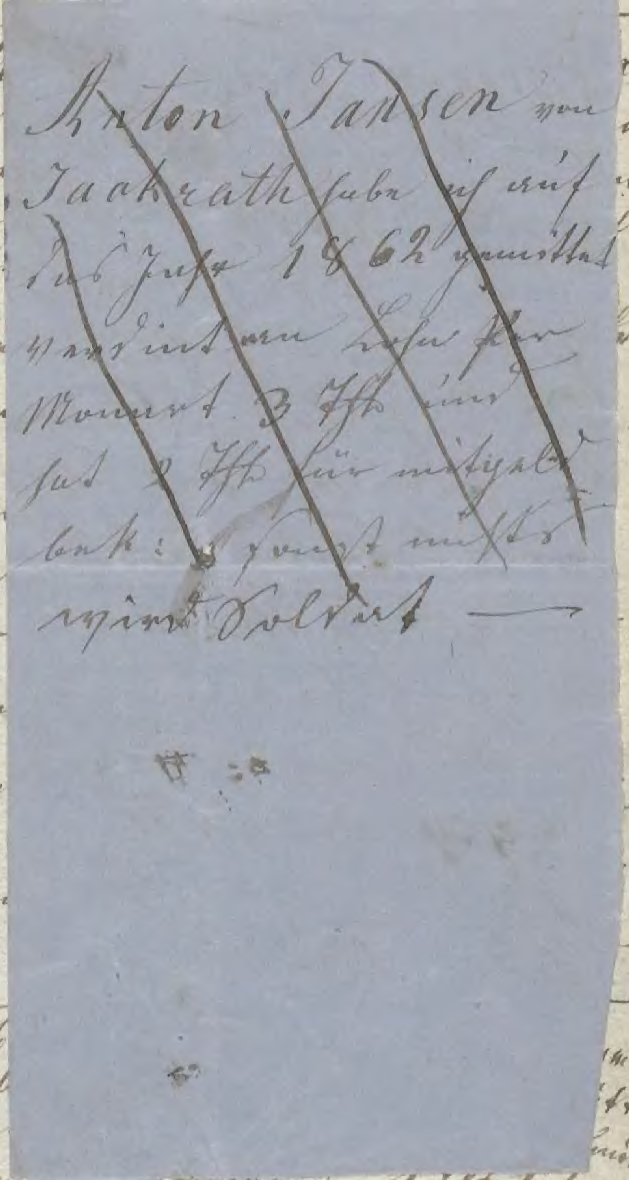 Anton Jansen von
Jackrath habe ich auf
das Jahr 1862 gemittet
verdint an Lohn per
Monnat 3 Thl und
hat 2 Thl für mitgeld
bek: sonst nichts
wird Soldat —